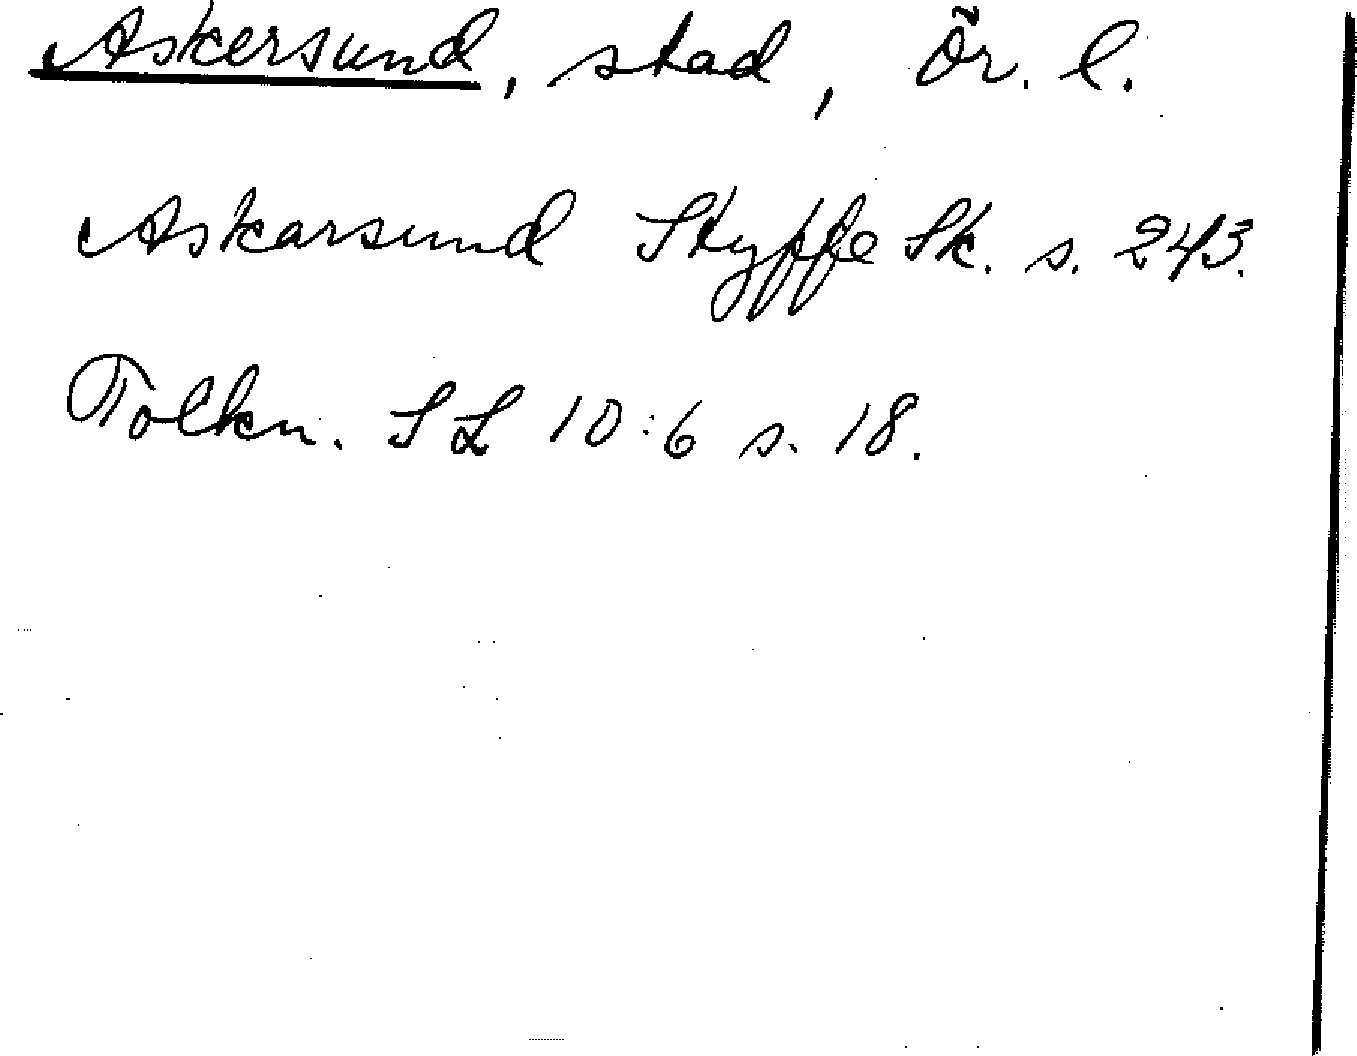 Askersund, stad, Ör. l.
Askarsund Styffe Sk. s. 243.
Tolkn. SL 10:6 s. 18.